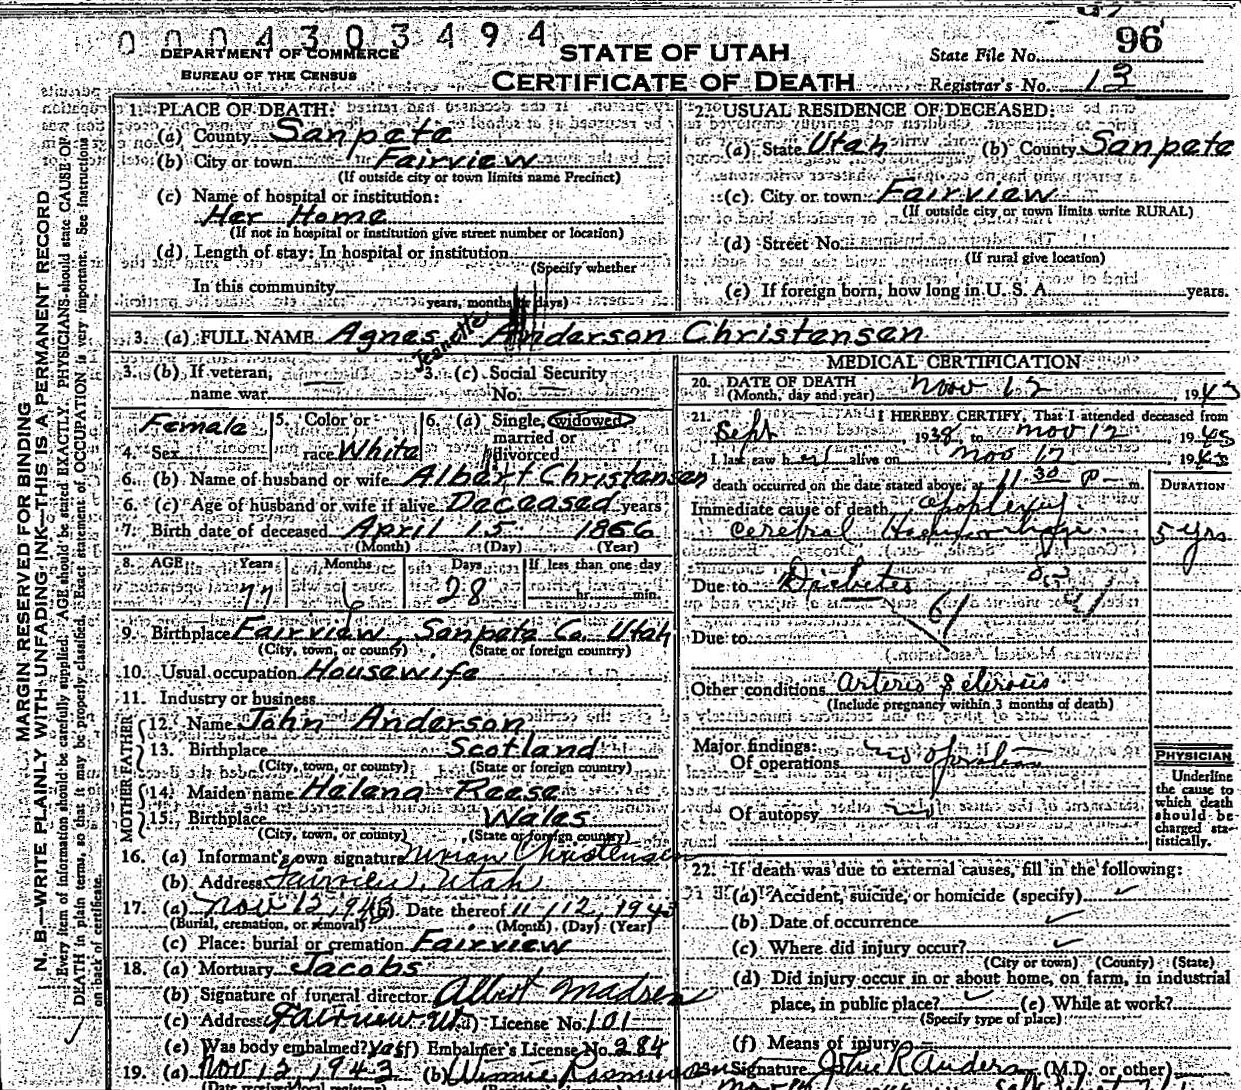 0004303494
DEPARTMENT OF COMMERCE
BUREAU OF THE CENSUS
STATE OF UTAH
CERTIFICATE OF DEATH
State File No. 96
Registrar's No. 13
MARGIN RESERVED FOR BINDING
N. B.—WRITE PLAINLY WITH UNFADING INK—THIS IS A PERMANENT RECORD
Every item of information should be carefully supplied. AGE should be stated EXACTLY. PHYSICIANS should state CAUSE OF
DEATH in plain terms, so that it may be properly classified. Exact statement of OCCUPATION is very important. See instructions
on back of certificate.
1. PLACE OF DEATH:
(a) County Sanpete
(b) City or town Fairview
(If outside city or town limits name Precinct)
(c) Name of hospital or institution:
Her Home
(If not in hospital or institution give street number or location)
(d) Length of stay: In hospital or institution
(Specify whether
In this community
years, months or days)
2. USUAL RESIDENCE OF DECEASED:
(a) State Utah (b) County Sanpete
(c) City or town Fairview
(If outside city or town limits write RURAL)
(d) Street No.
(If rural give location)
(e) If foreign born, how long in U. S. A. years.
3. (a) FULL NAME Agnes Jeanette Anderson Christensen
3. (b) If veteran,
name war
3. (c) Social Security
No.
4. Sex Female
5. Color or
race White
6. (a) Single, widowed
married or
divorced
6. (b) Name of husband or wife Albert Christensen
6. (c) Age of husband or wife if alive Deceased years
7. Birth date of deceased April 15 1866
(Month) (Day) (Year)
8. AGE Years Months Days If less than one day
77 6 28 hr. min.
9. Birthplace Fairview, Sanpete Co. Utah
(City, town, or county) (State or foreign country)
10. Usual occupation Housewife
11. Industry or business
FATHER
12. Name John Anderson
13. Birthplace Scotland
(City, town, or county) (State or foreign country)
MOTHER
14. Maiden name Helena Reese
15. Birthplace Wales
(City, town, or county) (State or foreign country)
16. (a) Informant's own signature Christensen
(b) Address Fairview, Utah
17. (a) Nov 15, 1943 Date thereof 11/12, 1943
(Burial, cremation, or removal) (Month) (Day) (Year)
(c) Place: burial or cremation Fairview
18. (a) Mortuary Jacobs
(b) Signature of funeral director Albert Madsen
(c) Address Fairview Ut. (d) License No. 101
(e) Was body embalmed? yes (f) Embalmer's License No. 284
19. (a) Nov 12 1943 (b) Winnie Rasmussen
(Date received local registrar)
MEDICAL CERTIFICATION
20. DATE OF DEATH Nov 12, 1943
(Month, day and year)
21. I HEREBY CERTIFY, That I attended deceased from
Sept 1938 to Nov 12 1943
I last saw her alive on Nov 12 1943
death occurred on the date stated above, at 11:30 P m.
DURATION
Immediate cause of death apoplexy
Cerebral Hemorrhage 5 yrs
Due to Diabetes
61
Due to
Other conditions Arterio Sclerosis
(Include pregnancy within 3 months of death)
Major findings:
Of operations no operation
Of autopsy no
PHYSICIAN
Underline
the cause to
which death
should be
charged sta-
tistically.
22. If death was due to external causes, fill in the following:
(a) Accident, suicide, or homicide (specify) ✓
(b) Date of occurrence ✓
(c) Where did injury occur? ✓
(City or town) (County) (State)
(d) Did injury occur in or about home, on farm, in industrial
place, in public place? ✓ (e) While at work?
(Specify type of place)
(f) Means of injury
Signature John R Anders (M.D. or other)